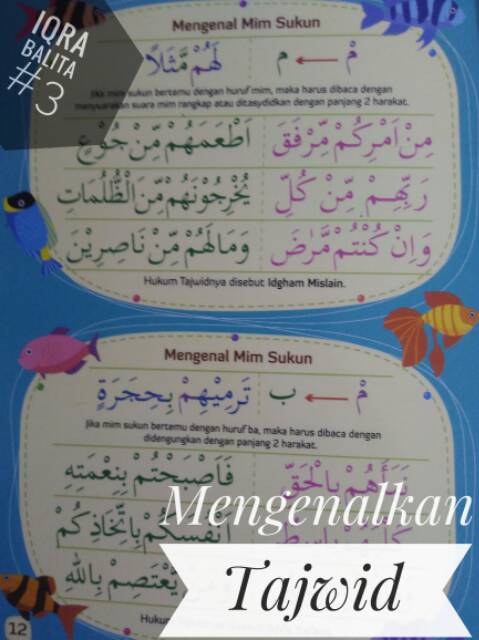 IQRA
BALITA
#3
Mengenal Mim Sukun
مْ ← م لَهُمْ مَّثَلًا
Jika mim sukun bertemu dengan huruf mim, maka harus dibaca dengan
menyuarakan suara mim rangkap atau ditasydidkan dengan panjang 2 harakat.
مِنْ اَمْرِكُمْ مِّرْفَقَ اَطْعَمَهُمْ مِّنْ جُوْعٍ
رَبِّهِمْ مِّنْ كُلِّ يُخْرِجُوْنَهُمْ مِّنَ الظُّلُمَاتِ
وَاِنْ كُنْتُمْ مَّرْضَ وَمَالَهُمْ مِّنْ نَاصِرِيْنَ
Hukum Tajwidnya disebut Idgham Mislain.
Mengenal Mim Sukun
مْ ← ب تَرْمِيْهِمْ بِحِجَرَةٍ
Jika mim sukun bertemu dengan huruf ba, maka harus dibaca dengan
didengungkan dengan panjang 2 harakat.
نَبَأَهُمْ بِالْحَقِّ فَاَصْبَحْتُمْ بِنِعْمَتِهِ
اَنْفُسَكُمْ بِاتِّخَاذِكُمْ
يَّعْتَصِمْ بِاللّٰهِ
Mengenalkan
Tajwid
12